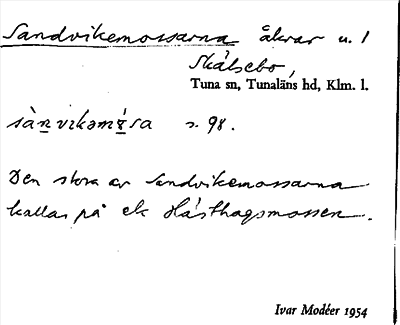 Sandvikemossarna åkrar u. 1
Skälsebo,
Tuna sn, Tunaläns hd, Klm. l.
s. 98.
Den stora av Sandvikemossarna
kallas på ek Hästhagsmossen.
Ivar Modéer 1954